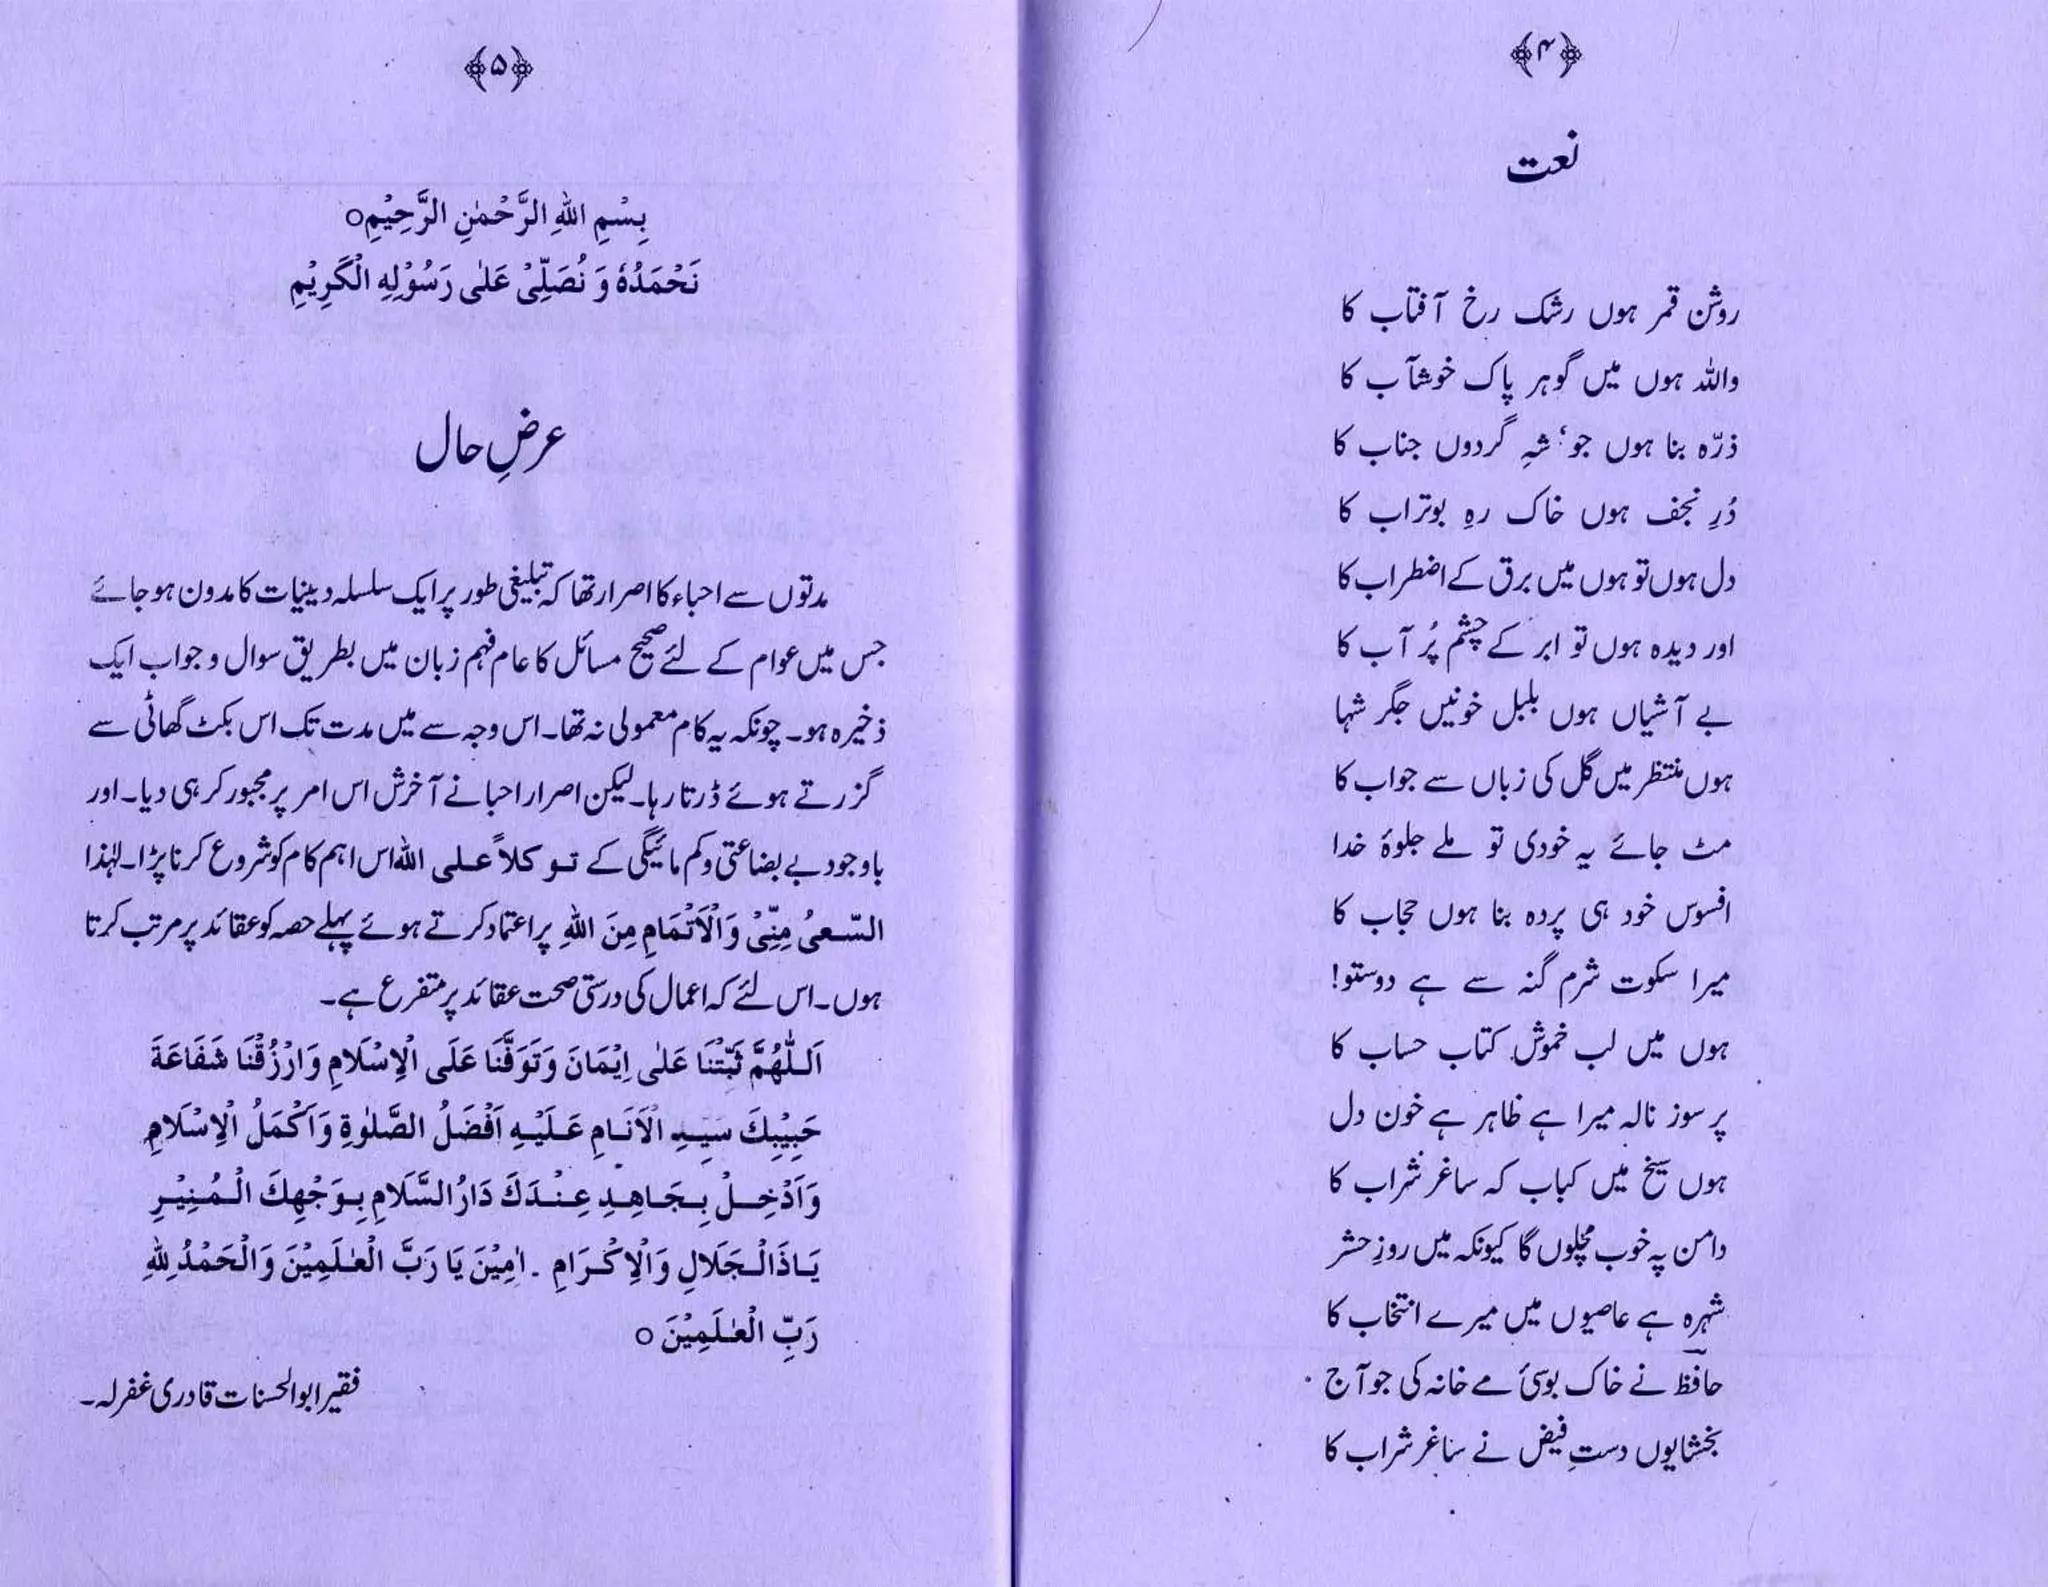 ﴿۴﴾
نعت
روشن قمر ہوں رشک رخ آفتاب کا
واللہ ہوں میں گوہر پاک خوشآب کا
ذرّہ بنا ہوں جو، شہِ گردوں جناب کا
دُرِ نجف ہوں خاک رہِ بوتراب کا
دل ہوں تو ہوں میں برق کے اضطراب کا
اور دیدہ ہوں تو ابر کے چشم پُر آب کا
بے آشیاں ہوں بلبل خونیں جگر شہا
ہوں منتظر میں گل کی زباں سے جواب کا
مٹ جائے یہ خودی تو ملے جلوۂ خدا
افسوس خود ہی پردہ بنا ہوں حجاب کا
میرا سکوت شرم گنہ سے ہے دوستو!
ہوں میں لب خموش کتاب حساب کا
پر سوز نالہ میرا ہے ظاہر ہے خون دل
ہوں سیخ میں کباب کہ ساغر شراب کا
دامن پہ خوب مچلوں گا کیونکہ میں روزِ حشر
شہرہ ہے عاصیوں میں میرے انتخاب کا
حافظ نے خاک بوسئ مے خانہ کی جو آج
بخشایوں دستِ فیض نے ساغر شراب کا
﴿۵﴾
بِسْمِ اللهِ الرَّحْمٰنِ الرَّحِيْمِ○
نَحْمَدُهٗ وَ نُصَلِّىْ عَلٰى رَسُوْلِهِ الْكَرِيْمِ
عرضِ حال
مدتوں سے احباء کا اصرار تھا کہ تبلیغی طور پر ایک سلسلہ دینیات کا مدون ہو جائے
جس میں عوام کے لئے صحیح مسائل کا عام فہم زبان میں بطریق سوال و جواب ایک
ذخیرہ ہو۔ چونکہ یہ کام معمولی نہ تھا۔ اس وجہ سے میں مدت تک اس بکٹ گھاٹی سے
گزرتے ہوئے ڈرتا رہا۔ لیکن اصرار احبا نے آخرش اس امر پر مجبور کر ہی دیا۔ اور
باوجود بے بضاعتی و کم مائیگی کے توکلاً علی اللہ اس اہم کام کو شروع کرنا پڑا۔ لہٰذا
السّعىُ مِنِّىْ وَالْاَتْمَامِ مِنَ اللهِ پر اعتماد کرتے ہوئے پہلے حصہ کو عقائد پر مرتب کرتا
ہوں۔ اس لئے کہ اعمال کی درستی صحت عقائد پر متفرع ہے۔
اَللّٰهُمَّ ثَبِّتْنَا عَلٰى اِيْمَانَ وَتَوَفَّنَا عَلَى الْاِسْلَامِ وَارْزُقْنَا شَفَاعَةَ
حَبِيْبِكَ سَيِدِ الْاَنَامِ عَلَيْهِ اَفْضَلُ الصَّلٰوةِ وَاَكْمَلُ الْاِسْلَامِ
وَاَدْخِلْ بِجَاهِدِ عِنْدَكَ دَارُ السَّلَامِ بِوَجْهِكَ الْمُنِيْرِ
يَاذَالْجَلَالِ وَالْاِكْرَامِ ۔ اٰمِيْنَ يَا رَبَّ الْعٰلَمِيْنَ وَالْحَمْدُ لِلّٰهِ
رَبِّ الْعٰلَمِيْنَ ○
فقیر ابوالحسنات قادری غفرلہ۔